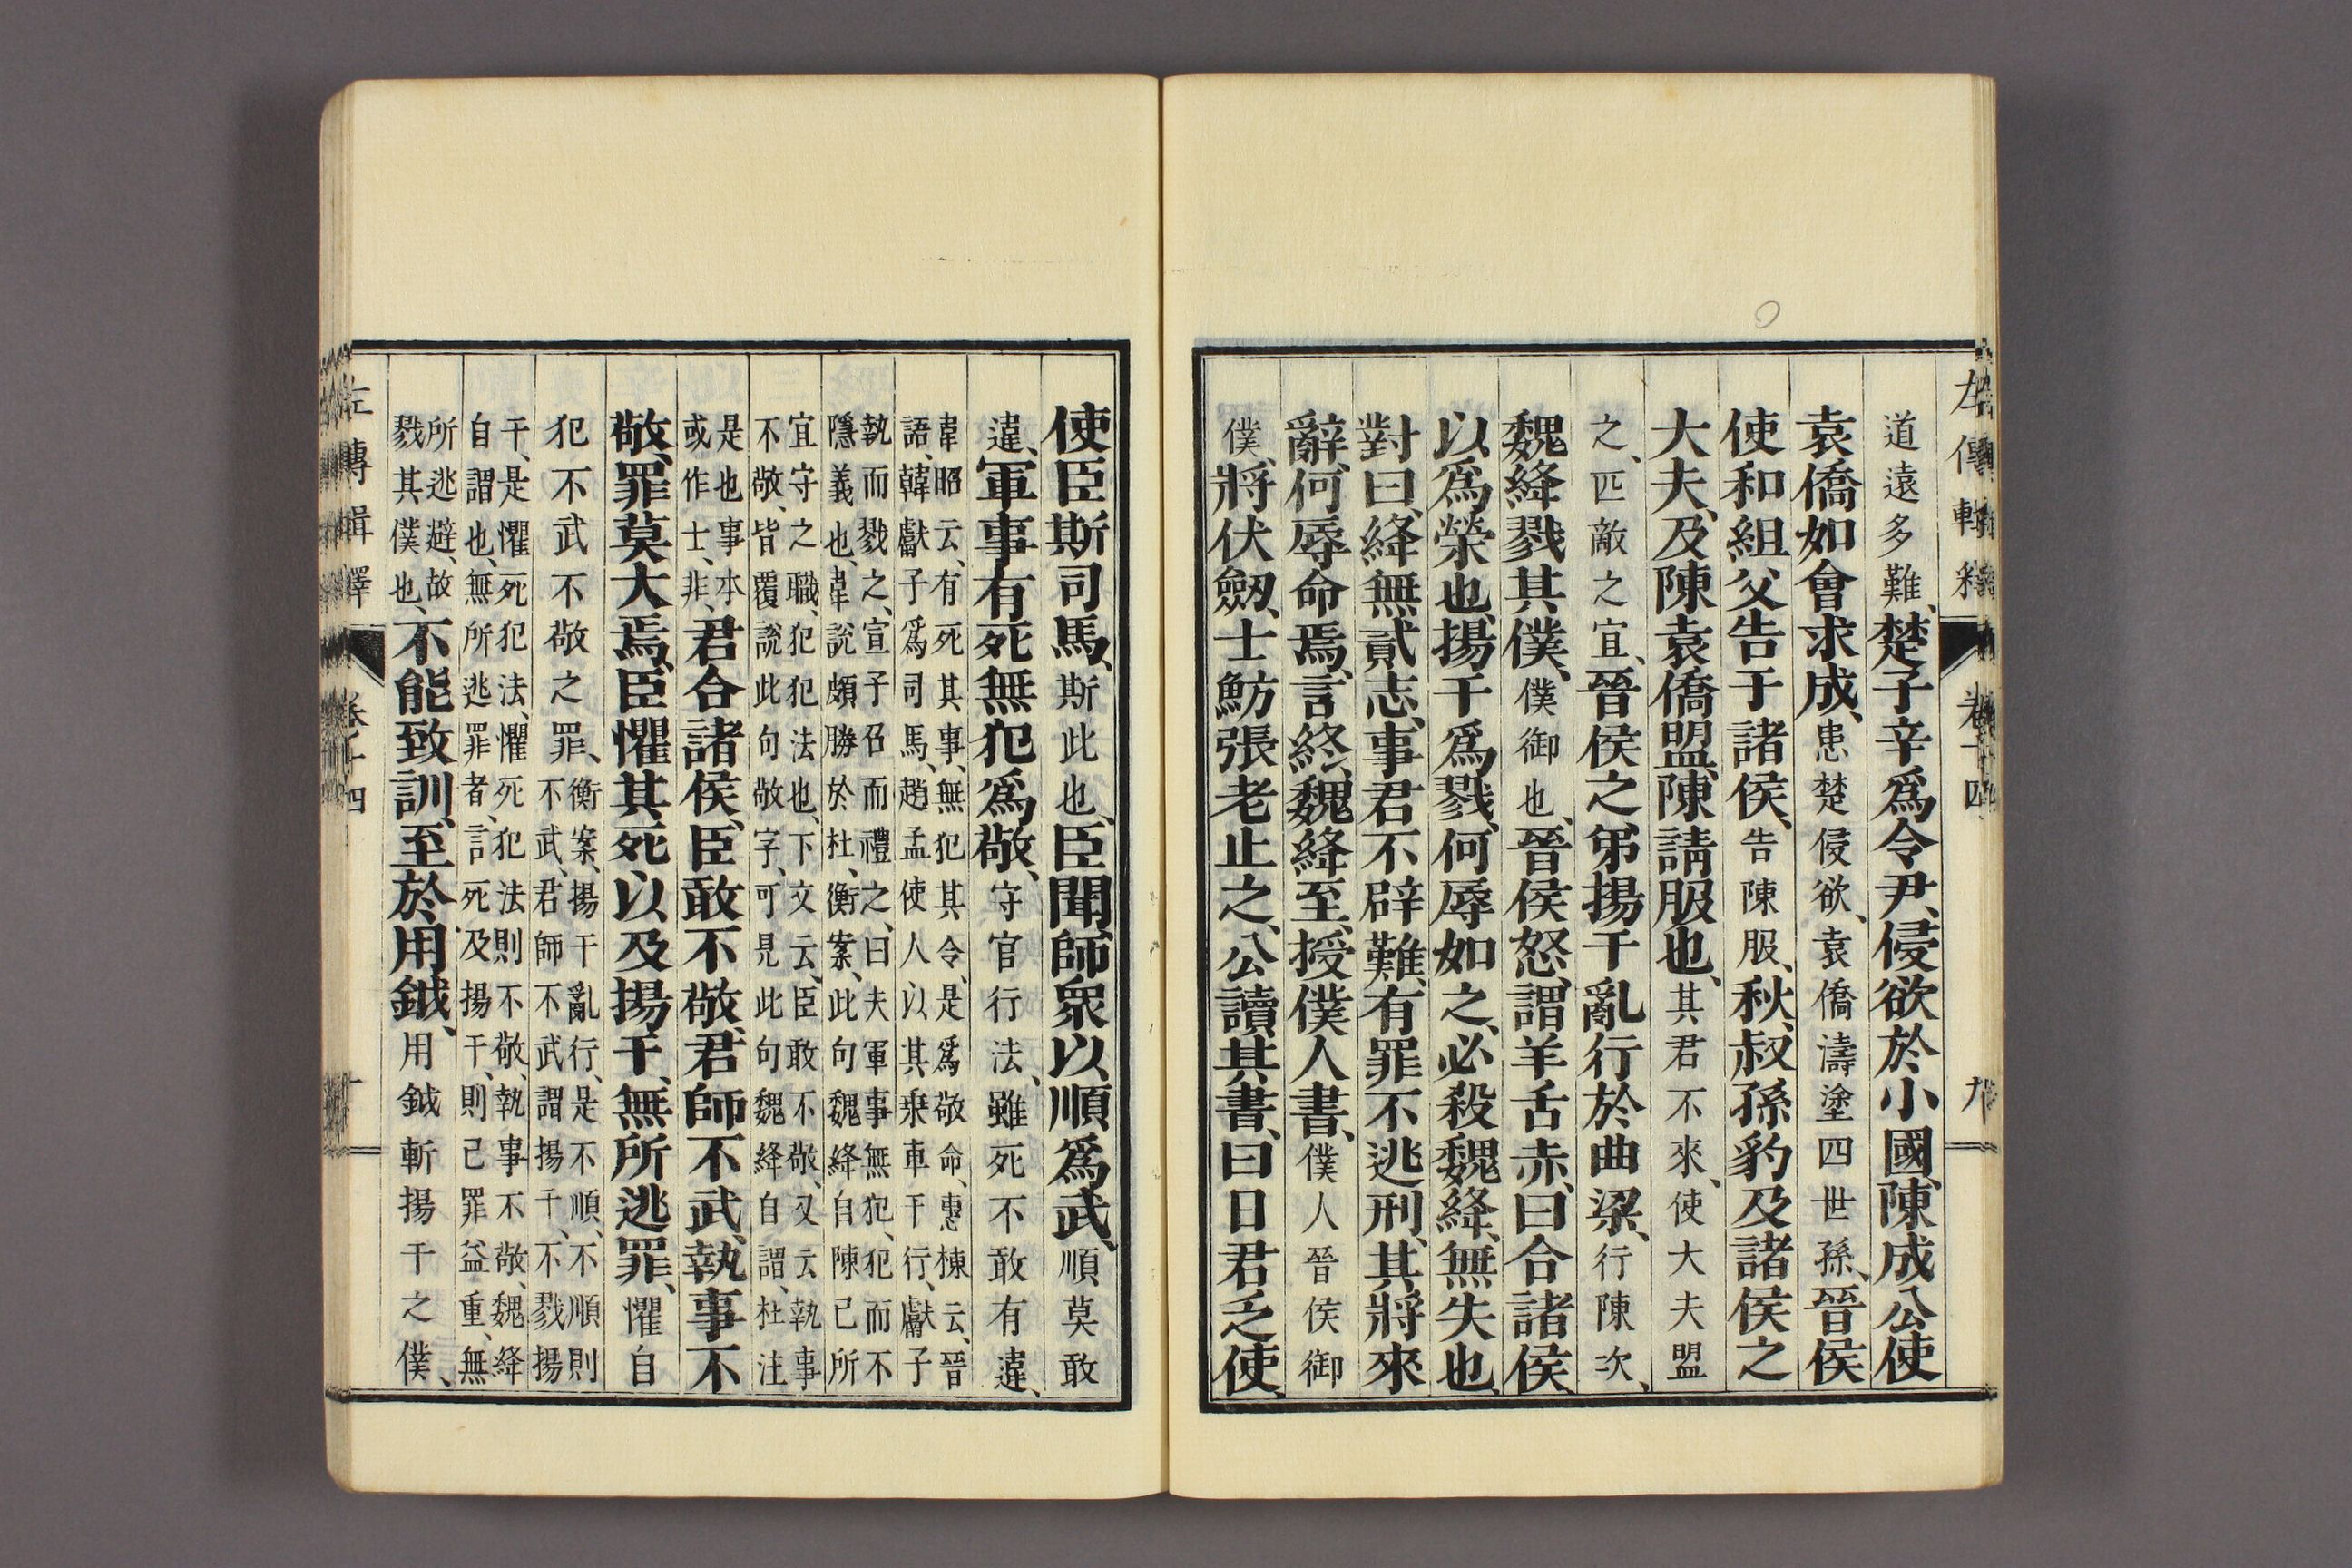 道遠多難、楚子辛爲令尹、侵欲於小國、陳成公使
袁僑如會求成、患楚侵欲、袁僑濤塗四世孫、晉侯
使和組父告于諸侯、告陳服、秋、叔孫豹及諸侯之
大夫、及陳袁僑盟、陳請服也、其君不來、使大夫盟
之、匹敵之宜、晉侯之弟揚干亂行於曲梁、行陳次、
魏絳戮其僕、僕御也、晉侯怒、謂羊舌赤、曰合諸侯
以爲榮也、揚干爲戮、何辱如之、必殺魏絳、無失也、
對曰、絳無貳志、事君不辟難、有罪不逃刑、其將來
辭、何辱命焉、言終、魏絳至、授僕人書、僕人晉侯御
僕、將伏劔、士魴張老止之、公讀其書、曰日君乏使、
使臣斯司馬、斯此也、臣聞、師衆以順爲武、順莫敢
違、軍事有死無犯爲敬、守官行法、雖死不敢有違、
韋昭云、有死其事、無犯其令、是爲敬命、惠棟云、晉
語、韓獻子爲司馬、趙孟使人以其乘車干行、獻子
執而戮之、宣子召而禮之、曰夫軍事無犯、犯而不
隱義也、韋說頗勝於杜、衡案、此句魏絳自陳已所
宜守之職、犯犯法也、下文云、臣敢不敬、又云執事
不敬、皆覆說此句敬字、可見此句魏絳自謂、杜注
是也事本
或作士、非、君合諸侯、臣敢不敬、君師不武、執事不
敬、罪莫大焉、臣懼其死、以及揚干、無所逃罪、懼自
犯不武不敬之罪、衡案、揚干亂行、是不順、不順則
不武、君師不武謂揚干、不戮揚
干、是懼死犯法、懼死犯法則不敬、執事不敬、魏絳
自謂也、無所逃罪者、言死及揚干、則己罪益重、無
所逃避、故
戮其僕也、不能致訓、至於用鉞、用鉞斬揚干之僕、
左傳輯釋 卷十四